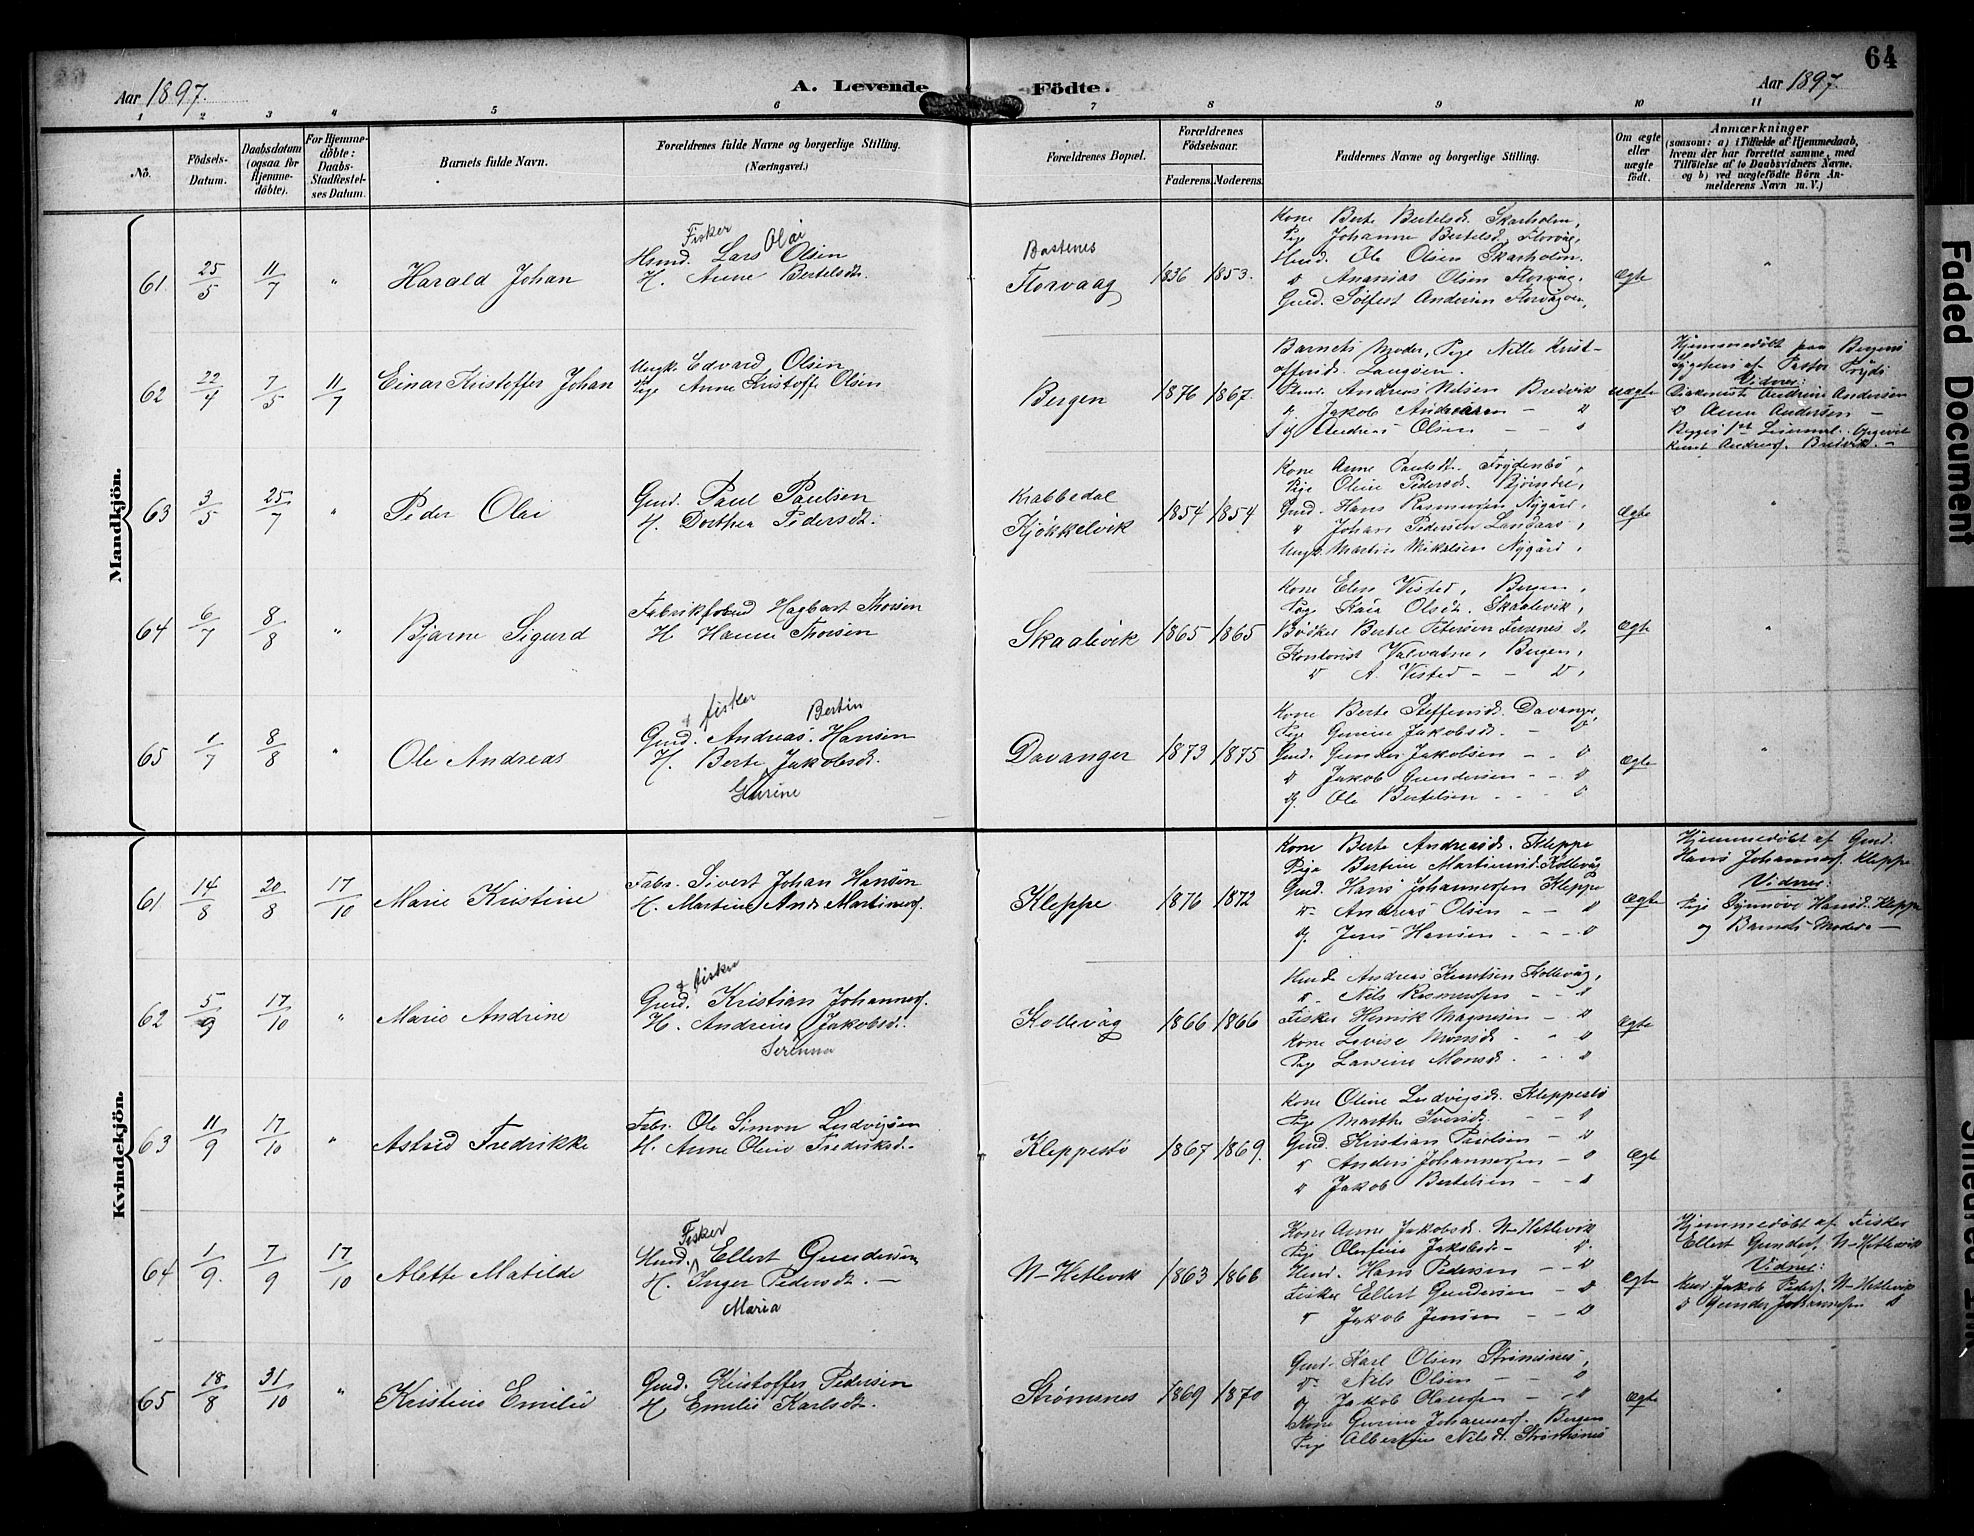 64
Aar 1897.
A. Levende Födte.
Aar 1897.
1 2 3 4 5 6 7 8 9 10 11
No.
Födsels-Datum.
Daabsdatum (ogsaa for Hjemme-döbte).
For Hjemme-döbte: Daabs-Stadfæstel-ses Datum.
Barnets fulde Navn.
Forældrenes fulde Navne og borgerlige Stilling.
(Næringsvei.)
Forældrenes Bopæl.
Forældrenes Födselsaar.
Faderens. Moderens.
Faddernes Navne og borgerlige Stilling.
Om ægte eller uægte födt.
Anmærkninger
(saasom: a) i Tilfælde af Hjemmedaab,
hvem der har forrettet samme, med
Tilföielse af to Daabsvidners Navne.
og b) ved uægtefödte Börn An-
melderens Navn m. V.)
Mandkjön.
61. 25/5 11/7 " Harald Johan
Fisker Olai
Hsmd. Lars Olsen
H. Anne Bertelsdt.
Bastenes
Florvaag 1836 1853.
Kone Berte Bertelsdt. Skarholm,
Pige Johanne Bertelsd. Florvåg,
Hmd. Ole Olsen Skarholm.
D Ananias Olsen Florvåg.
Gmd. Sölfest Andersen Florvågøen,
Ægte "
62 22/4 7/5 11/7 Einar Kristoffer Johan
Ungk. Edvard Olsen
Pige Anne Kristoff. Olsen
Bergen 1876 1867.
Barnets Moder, Pige Nille Krist-
offersd. Langøen.
Gmd. Andreas Nilsen Bredvik
D Jakob Andreassen — D
og Andreas Olsen — — D
uægte
Hjemmedöbt paa Bergens
Sygehus af Pastor Frydi
Vidner:
Diakonisse Andrine Andersen
D Anna Andersen —
63 3/5 25/7 " Peder Olai
Gmd. Paul Paulsen
H. Dorthea Pedersdt.
Krabbedal
Kjøkkelvik 1854 1854
Kone Anne Paulsdt. Frydenbö,
Pige Oline Pedersdt. Bjorndal,
Gmd. Hans Rasmussen Nygård,
" Johan Pedersen Landaas,
Ungk. Martin Mikalsen Nygård,
Ægte "
64 6/7 8/8 " Bjarne Sigurd
Hagbart Thorsen
H Hanna Thorsen
Skaalevik 1865 1865
Kone Elen Visted, Bergen,
Pige Kaia Olsdt. Skaalevik,
Bödker Bertel Petersen D,
Kontorist Valvatne, Bergen,
D A. Visted — — D,
Ægte "
65 1/7 8/8 " Ole Andreas
& fisker Bertin
Gmd. Andreas Hansen
H. Berte Jakobsdt.
Gurine
Davanger 1873 1875
Kone Berte Steffensdt. Davanger,
Pige Gurine Jakobsdt. — D
Gmd. Gunder Jakobsen — — D
D Jakob Gundersen — — D
og. Ole Bertelsen — — D
Ægte "
Kvindekjön.
61 14/8 20/8 17/10 Marie Kristine
Fabr. Sivert Johan Hansen
H. Martine Andr. Martinusd.
Kleppe 1876 1872
Kone Berte Andreasdt. Kleppe
Pige Bertine Martinusd. Kollevåg
Gmd. Hans Johannessen Kleppe
D Andreas Olsen — — D
og. Jens Hansen — — D
Ægte
Hjemmedöbt af Gmd.
Hans Johannesf. Kleppe
Vidner:
Pige Synnøve Hansd. Kleppe
og Barnets Moder —
62 5/9 17/10 " Marie Andrine
& fisker
Gmd. Kristian Johannesf.
H. Andrine Jakobsdt.
Serianna
Kollevåg 1866 1866
Hmd. Andreas Knutsen Kollevåg,
D. Nils Rasmussen — — D
Fisker Henrik Magnesen — D
Kone Lovise Monsdt. — — D
Pige Larsine Monsdt. — — D
Ægte
63 11/9 17/10 " Astrid Fredrikke
Fabr. Ole Simon Ludvigsen
H. Anne Oline Fredriksd.
Kleppestö 1867 1869.
Kone Oline Ludvigsdt. Kleppestö
Pige Marthe Iversdt. — — D
Gmd. Kristian Paulsen — D
D Anders Johannessen — D
D Jakob Bertelsen — — D
Ægte
64 1/9. 7/9 17/10 Alette Matilde
Fisker
Hmd. Ellert Gundersen
H. Inger Pedersdt. —
Maria
N-Hetlevik 1863 1866
Kone Anne Jakobsdt. N-Hetlevik
Pige Jakobsdt — D.
Hmd. Hans Pedersen — — D
Fisker Ellert Gundersen — D
D Jakob Jensen — — D
Ægte
Hjemmedöbt af Fisker
Ellert Gundersf. N-Hetlevik
Vidner:
Hmd. Jakob Pedersf. N-Hetlevik
D Gunder Johannessen D
65 18/8 31/10 " Kristine Emilie
Gmd. Kristoffer Pedersen
H. Emilie Karlsdt.
Strømsnes 1869 1870
Gmd. Karl Olsen Strömsnes,
D Nils Olsen — — D
og Jakob — D
Kone Gurine Johannesf. Bergen
Pige Albertine Nilsdt. Strömsnes
Ægte "
Faded Document
Smeared Ink